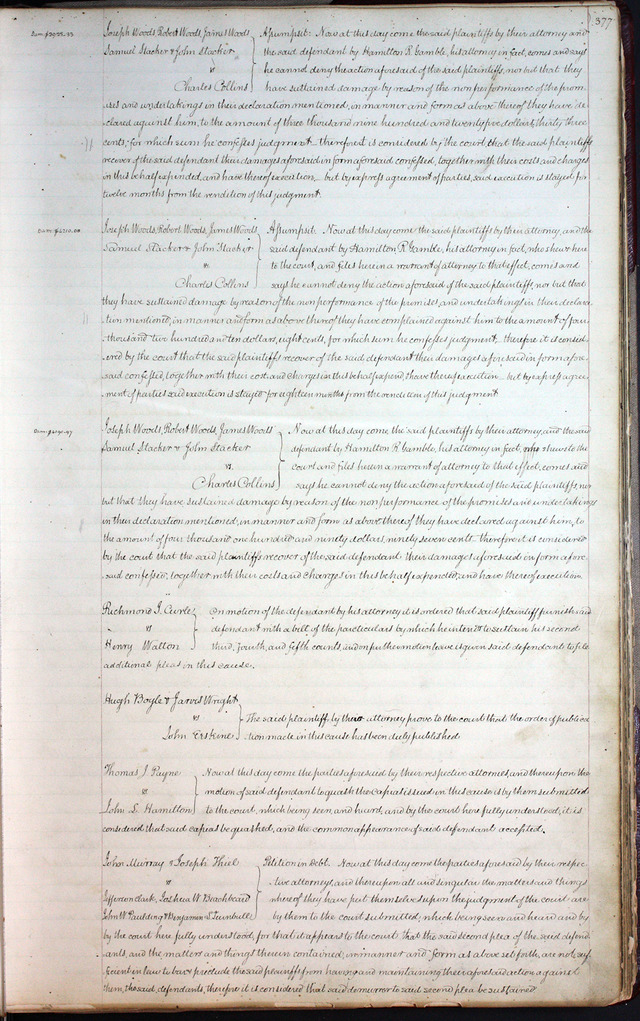 377
Joseph Woods, Robert Woods, James Woods Assumpsit. Now at this day come the said plaintiffs by their attorney and
Samuel Stacker & John Stacker the said defendant by Hamilton R. Gamble, his attorney in fact, comes and says
vs he cannot deny the action aforesaid of the said plaintiffs, nor but that they
Charles Collins have sustained damage by reason of the non performance of the prom-
ises and undertakings in their declaration mentioned, in manner and form as above thereof they have de-
clared against him, to the amount of three thousand nine hundred and twenty five dollars, thirty three
cents, for which sum he confesses judgment therefore it is considered by the court that the said plaintiffs
recover of the said defendant their damages aforesaid in form aforesaid confessed, together with their costs and charges
in this behalf expended, and have thereof execution, but by express agreement of parties, said execution is stayed for
twelve months from the rendition of this judgment.
Joseph Woods, Robert Woods, James Woods, Assumpsit. Now at this day come the said plaintiffs by their attorney, and the
Samuel Stacker & John Stacker said defendant by Hamilton R. Gamble, his attorney in fact, who shews here
vs to the court, and files herein a warrant of attorney to that effect, comes and
Charles Collins says he cannot deny the action aforesaid of the said plaintiffs, nor but that
they have sustained damage by reason of the non performance of the promises and undertakings in their declara-
tion mentioned, in manner and form as above thereof they have complained against him to the amount of four
thousand two hundred and ten dollars, eight cents, for which sum he confesses judgment therefore it is consid-
ered by the court that the said plaintiffs recover of the said defendant their damages aforesaid in form afore-
said confessed, together with their cost and charges in this behalf expend & have thereof execution but by express agree-
ment of parties said execution is stayed for eighteen months from the rendition of this judgment
Joseph Woods, Robert Woods, James Woods Now at this day come the said plaintiffs by their attorney, and the said
Samuel Stacker & John Stacker defendant by Hamilton R. Gamble, his attorney in fact, who shews to the
vs. court and files herein a warrant of attorney to that effect, comes and
Charles Collins says he cannot deny the action aforesaid of the said plaintiffs, nor
but that they have sustained damage by reason of the non performance of the promises and undertakings
in their declaration mentioned, in manner and form as above thereof they have declared against him, to
the amount of four thousand one hundred and ninety dollars, ninety seven cents. therefore it is considered
by the court that the said plaintiffs recover of the said defendant their damages aforesaid in form afore-
said confessed, together with their costs and charges in this behalf expended, and have thereof execution
Richmond J. Curle On motion of the defendant by his attorney it is ordered that said plaintiff furnish said
vs defendant with a bill of the particulars by which he intends to sustain his second
Henry Walton third, fourth, and fifth counts, and on further motion leave is given said defendants to file
additional pleas in this cause.
Hugh Boyle & Jarves Wright
vs The said plaintiffs by their attorney prove to the court that the order of publica-
John Erskine tion made in this cause has been duly published
Thomas J Payne Now at this day come the parties aforesaid by their respective attornies, and thereupon the
vs motion of said defendant to quash the capias issued in this cause is by them submitted
John L. Hamilton to the court, which being seen, and heard, and by the court here fully understood, it is
considered that said capias be quashed, and the common appearance of said defendant accepted.
John Murray & Joseph Thiel Petition in Debt. Now at this day come the parties aforesaid by their respec-
vs tive attorneys, and thereupon all and singular the matters and things
Jefferson Clark, Joshua W Brackbeard whereof they have put themselves upon the judgment of the court are
John W Paulding & Benjamin L Turnbull by them to the court submitted, which being seen and heard and by
by the court here fully understood, for that it appears to the court that the said second plea of the said defend-
ants, and the matters and things therein contained, in manner and form as above set forth, are not suf-
ficient in law to bar & preclude the said plaintiffs from having and maintaining their aforesaid action against
them, the said, defendants, therefore it is considered that said demurror to said second plea be sustained